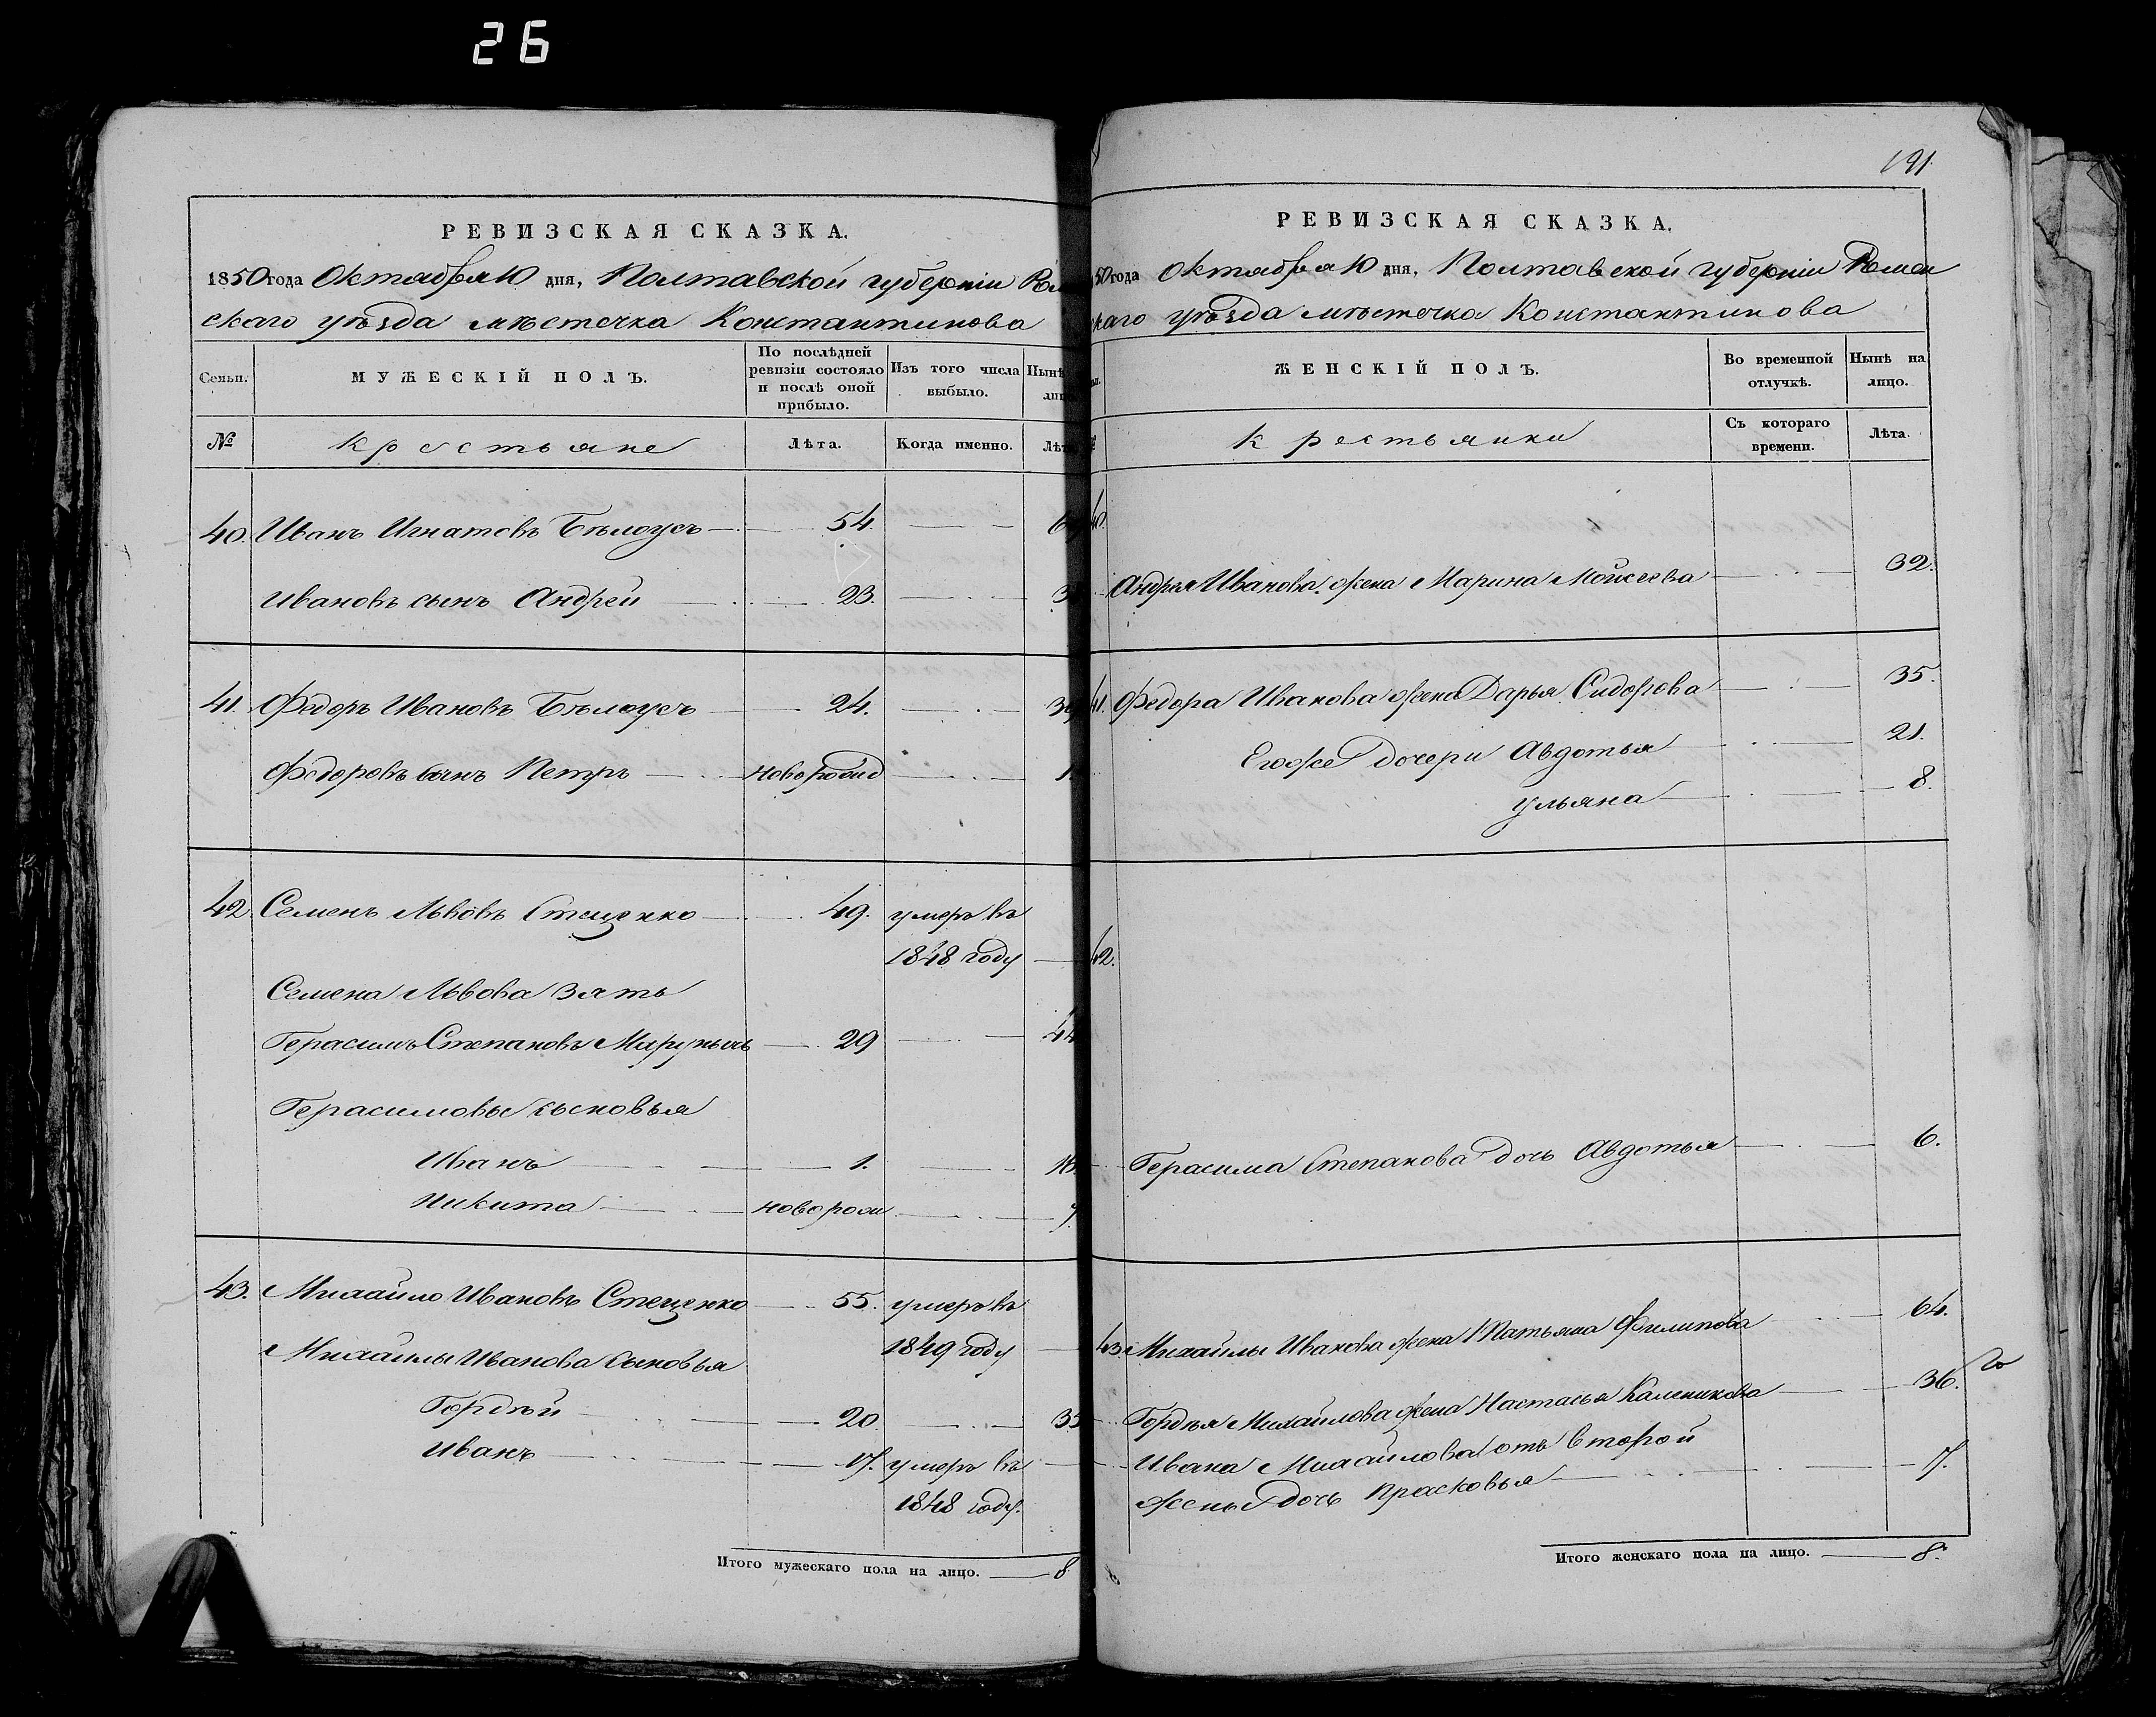 26
РЕВИЗСКАЯ СКАЗКА.
1850 года Октября 10 дня, Полтавской губерніи
скаго уѣзда мѣстечка Константинова
Семьи.
МУЖЕСКІЙ ПОЛЪ.
По послѣдней ревизіи состояло и послѣ оной прибыло.
Изъ того числа выбыло.
Нынѣ
№
Крестьяне
Лѣта.
Когда именно.
40. Иванъ Игнатовъ Бѣлоусъ 54.
Ивановъ сынъ Андрей 23.
41. Федоръ Ивановъ Бѣлоусъ 24.
Федоровъ сынъ Петръ новорожд
42. Семенъ Львовъ Стеценко 49. умеръ въ
1848 году
Семена Львова Зять
Герасимъ Степановъ 29 44
Герасимовы сыновья
Иванъ 1. 16.
Никита новорож
43. Михайло Ивановъ Стеценко 55. умеръ въ
1849 году
Михайлы Иванова сыновья
Гордѣй 20. 35
Иванъ 17. умеръ въ
1848 году.
Итого мужескаго пола на лицо. 8
191
РЕВИЗСКАЯ СКАЗКА.
50 года Октября 10 дня, Полтавской губерніи Ромен
скаго уѣзда мѣстечка Константинова
ЖЕНСКІЙ ПОЛЪ.
Во временной отлучкѣ.
Нынѣ на лицо.
Крестьянки
Съ котораго времени.
Лѣта.
40.
Андрея Иванова жена Марина Моисеева 32.
41. Федора Иванова жена Дарья Сидорова 35.
Егоже дочери Авдотья 21.
Ульяна 8.
42.
Герасима Степанова дочь Авдотья 6.
43. Михайлы Иванова жена Татьяна Филипова 64.
Гордѣя Михайлова жена Настасья Каленикова 36.
Ивана Михайлова отъ второй
жены дочь Прасковья 17.
Итого женскаго пола на лицо. 8.